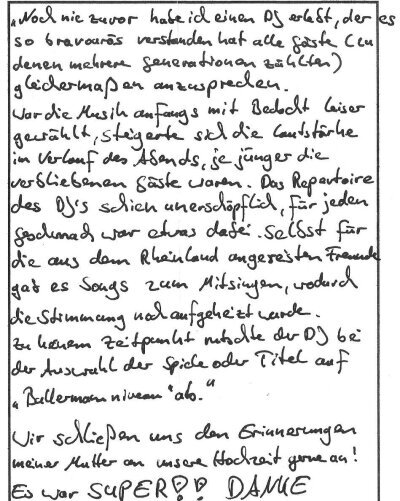 „Noch nie zuvor habe ich einen DJ erlebt, der es
so bravourös verstanden hat alle Gäste (zu
denen mehrere Generationen zählten)
gleichermaßen anzusprechen.
War die Musik anfangs mit Bedacht leiser
gewählt, steigerte sich die Lautstärke
im Verlauf des Abends, je jünger die
verbliebenen Gäste waren. Das Repertoire
des DJ's schien unerschöpflich, für jeden
Geschmack war etwas dabei. Selbst für
die aus dem Rheinland angereisten Freunde
gab es Songs zum Mitsingen, wodurch
die Stimmung noch aufgeheizt wurde.
Zu keinem Zeitpunkt rutschte der DJ bei
der Auswahl der Spiele oder Titel auf
„Ballermannniveau" ab."
Wir schließen uns den Erinnerungen
meiner Mutter an unsere Hochzeit gerne an!
Es war SUPER!! DANKE